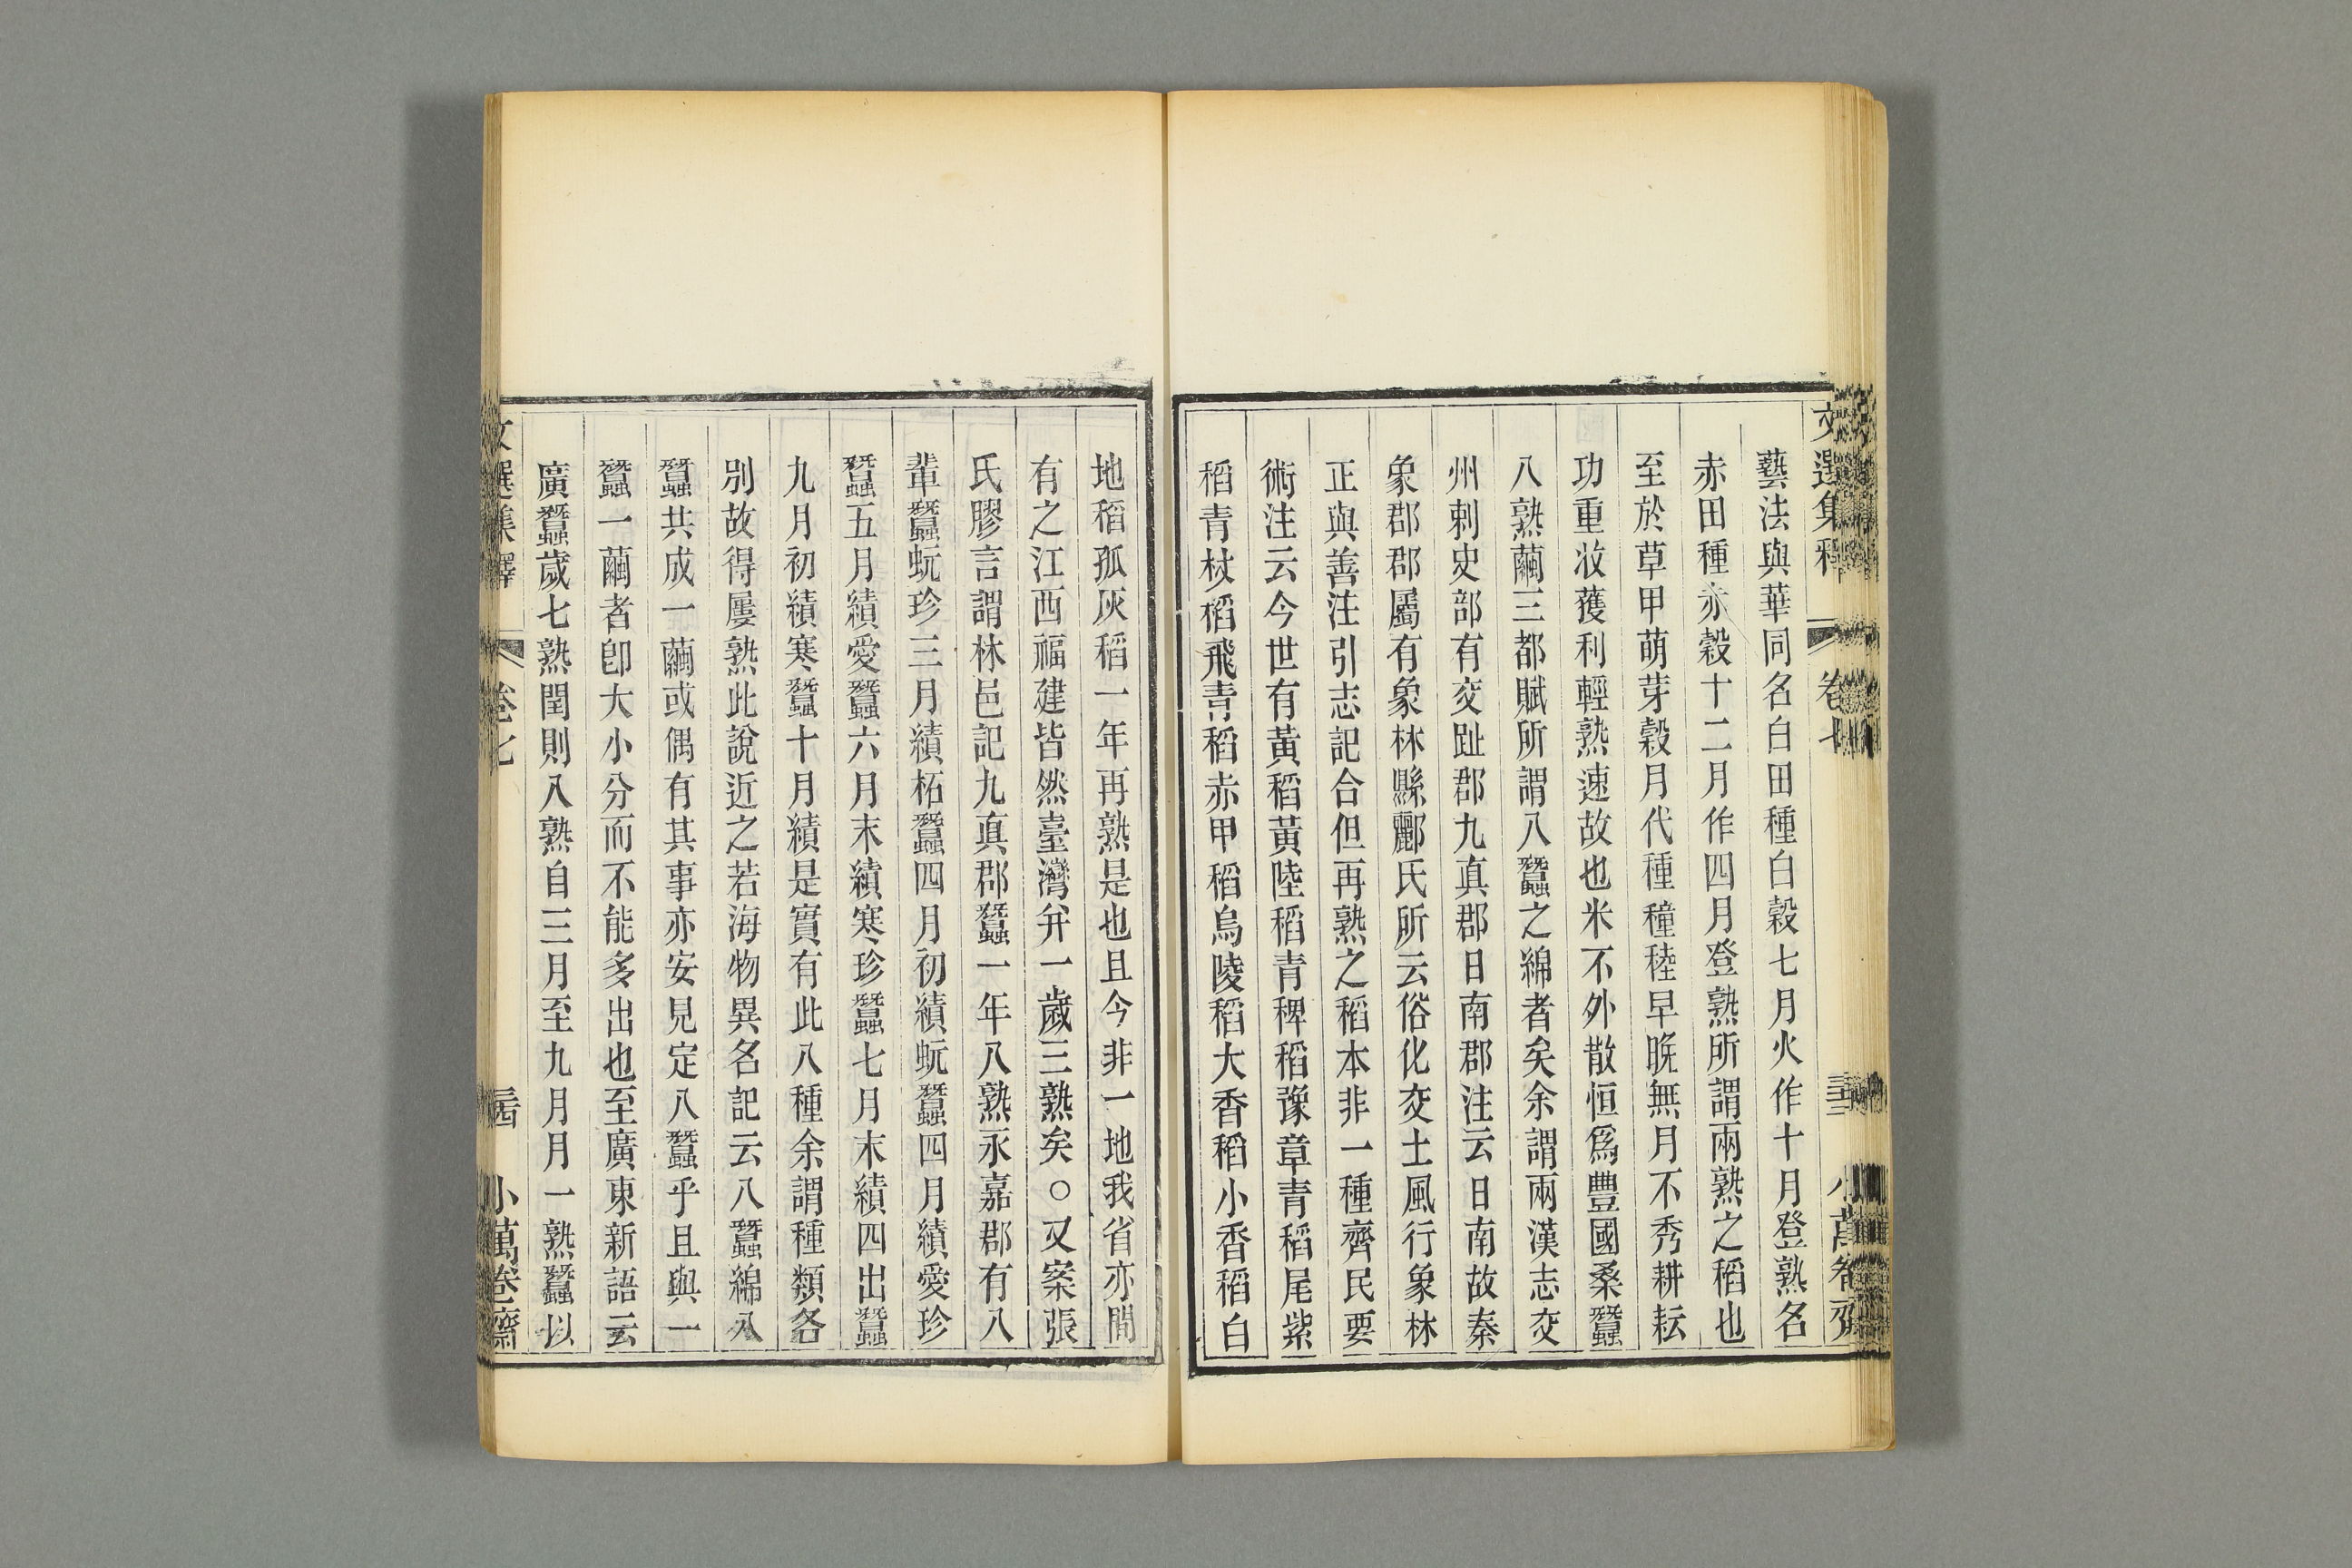 文選集釋 卷七 三三 小萬卷齋
藝法與華同名白田種白穀七月火作十月登熟名
赤田種赤穀十二月作四月登熟所謂兩熟之稻也
至於草甲萌芽穀月代種穜稑早晚無月不秀耕耘
功重收穫利輕熟速故也米不外散恒爲豐國桑蠶
八熟繭三都賦所謂八蠶之綿者矣余謂兩漢志交
州刺史部有交趾郡九真郡日南郡注云日南故秦
象郡郡屬有象林縣酈氏所云俗化交土風行象林
正與善注引志記合但再熟之稻本非一種齊民要
術注云今世有黃稻黃陸稻青稗稻豫章青稻尾紫
稻青杖稻飛青稻赤甲稻烏陵稻大香稻小香稻白
地稻孤灰稻一年再熟是也且今非一地我省亦間
有之江西福建皆然臺灣弁一歲三熟矣○又案張
氏膠言謂林邑記九真郡蠶一年八熟永嘉郡有八
輩蠶蚖珍三月績柘蠶四月初績蚖蠶四月績愛珍
蠶五月績愛蠶六月末績寒珍蠶七月末績四出蠶
九月初績寒蠶十月績是實有此八種余謂種類各
別故得屢熟此說近之若海物異名記云八蠶綿八
蠶共成一繭或偶有其事亦安見定八蠶乎且與一
蠶一繭者卽大小分而不能多出也至廣東新語云
廣蠶歲七熟閏則八熟自三月至九月月一熟蠶以
文選集釋 卷七 三四 小萬卷齋